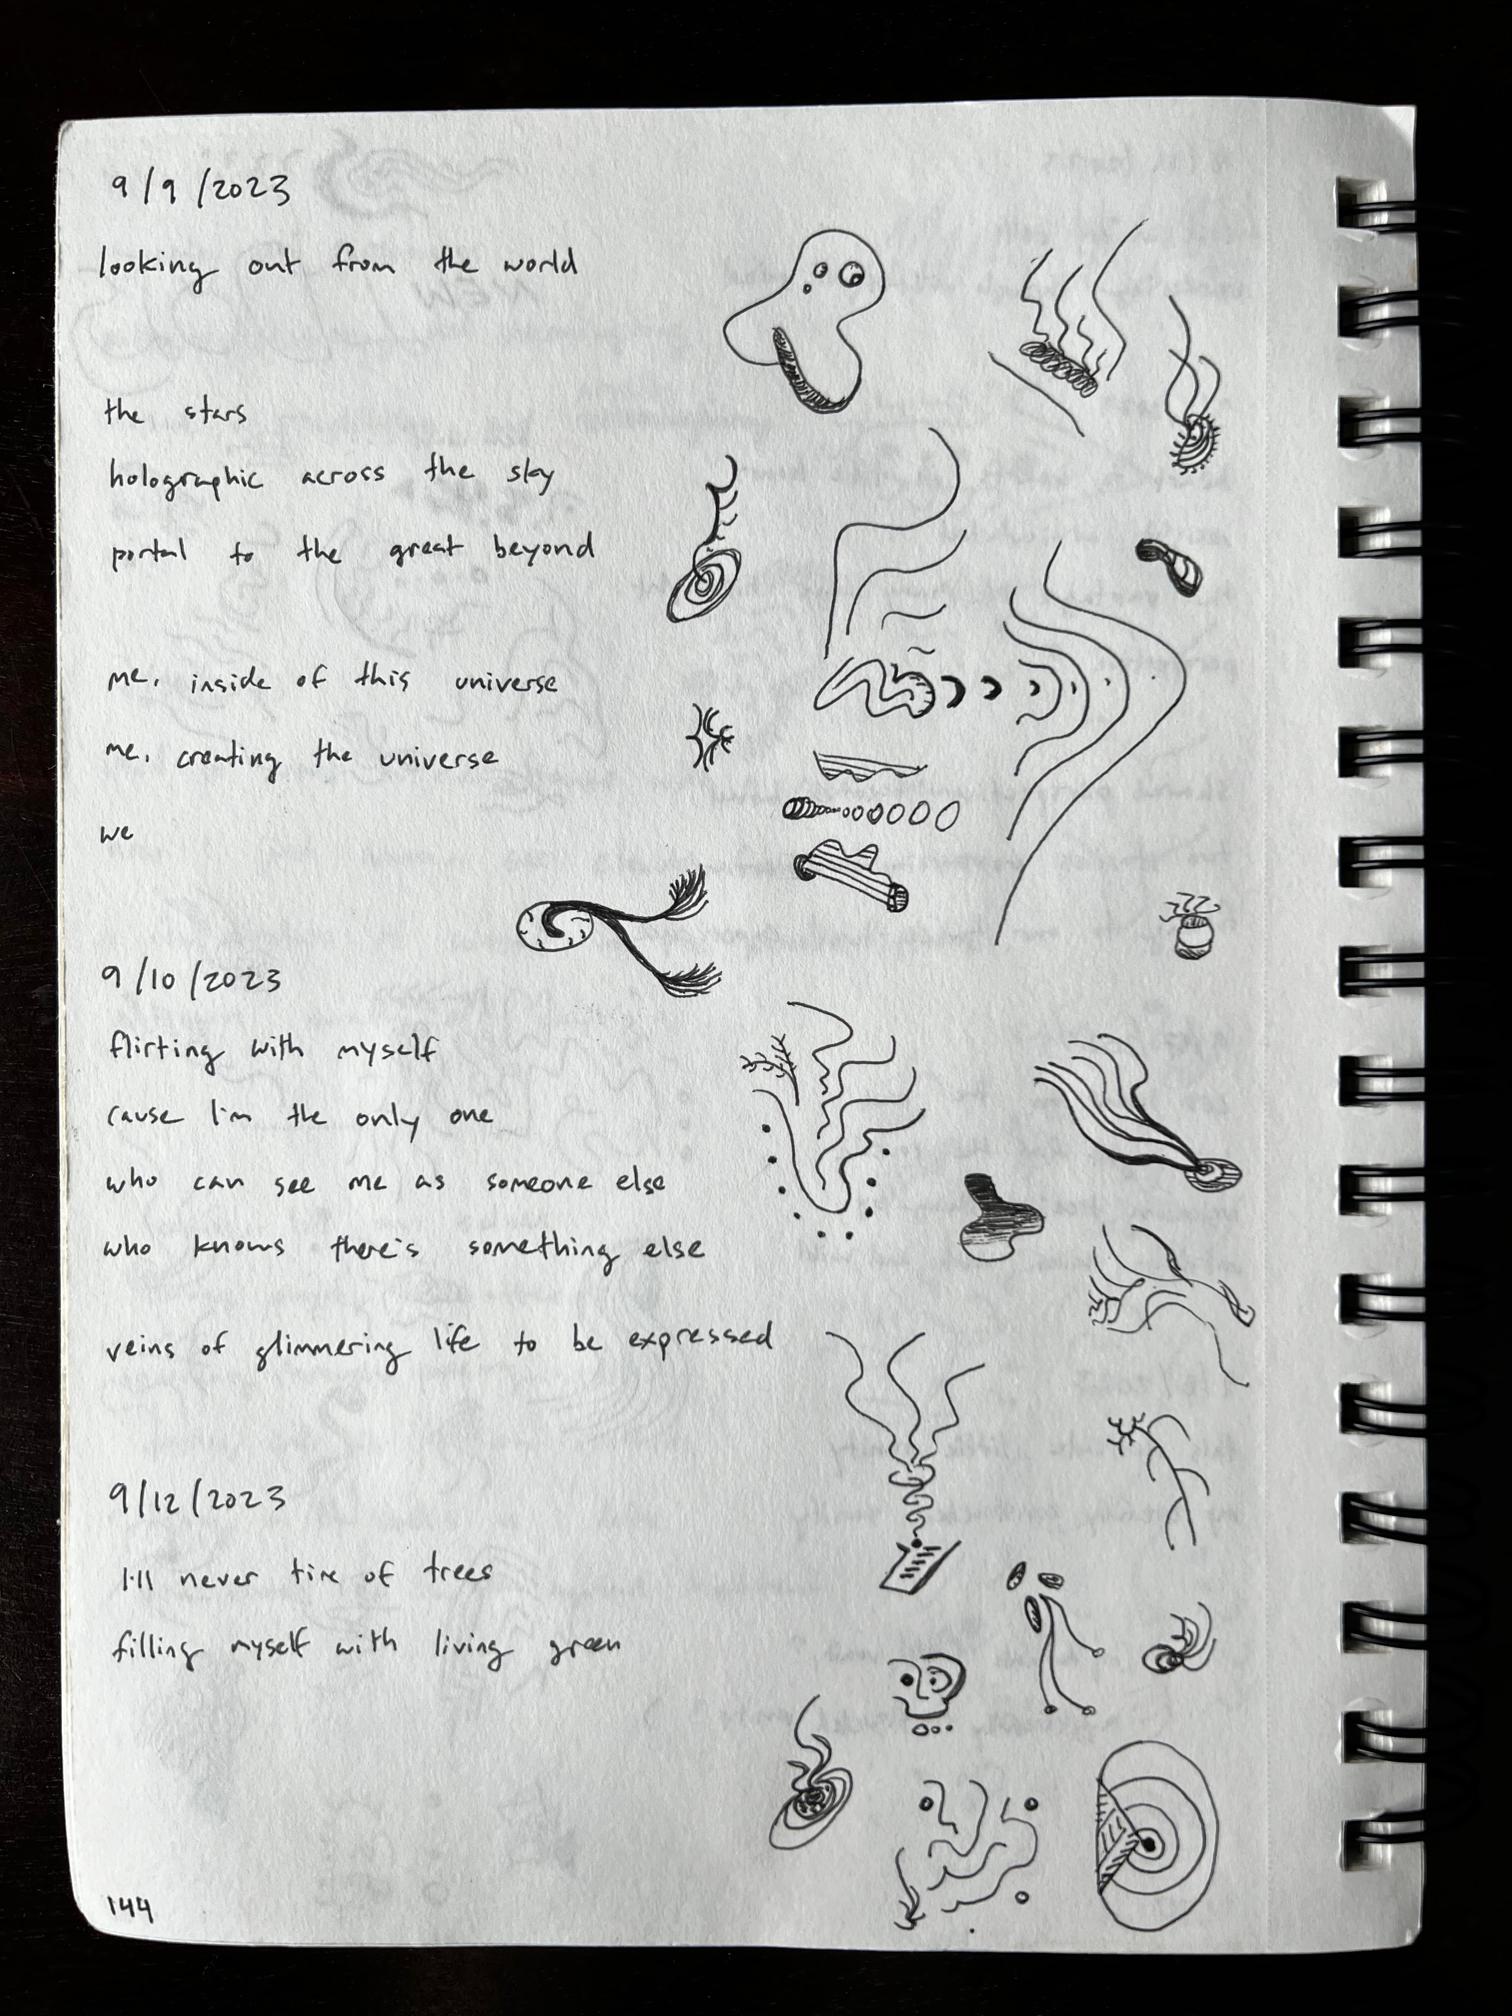 9/9/2023
looking out from the world
the stars
holographic across the sky
portal to the great beyond
me, inside of this universe
me, creating the universe
we
9/10/2023
flirting with myself
cause I'm the only one
who can see me as someone else
who knows there's something else
veins of glimmering life to be expressed
9/12/2023
I'll never tire of trees
filling myself with living green
144